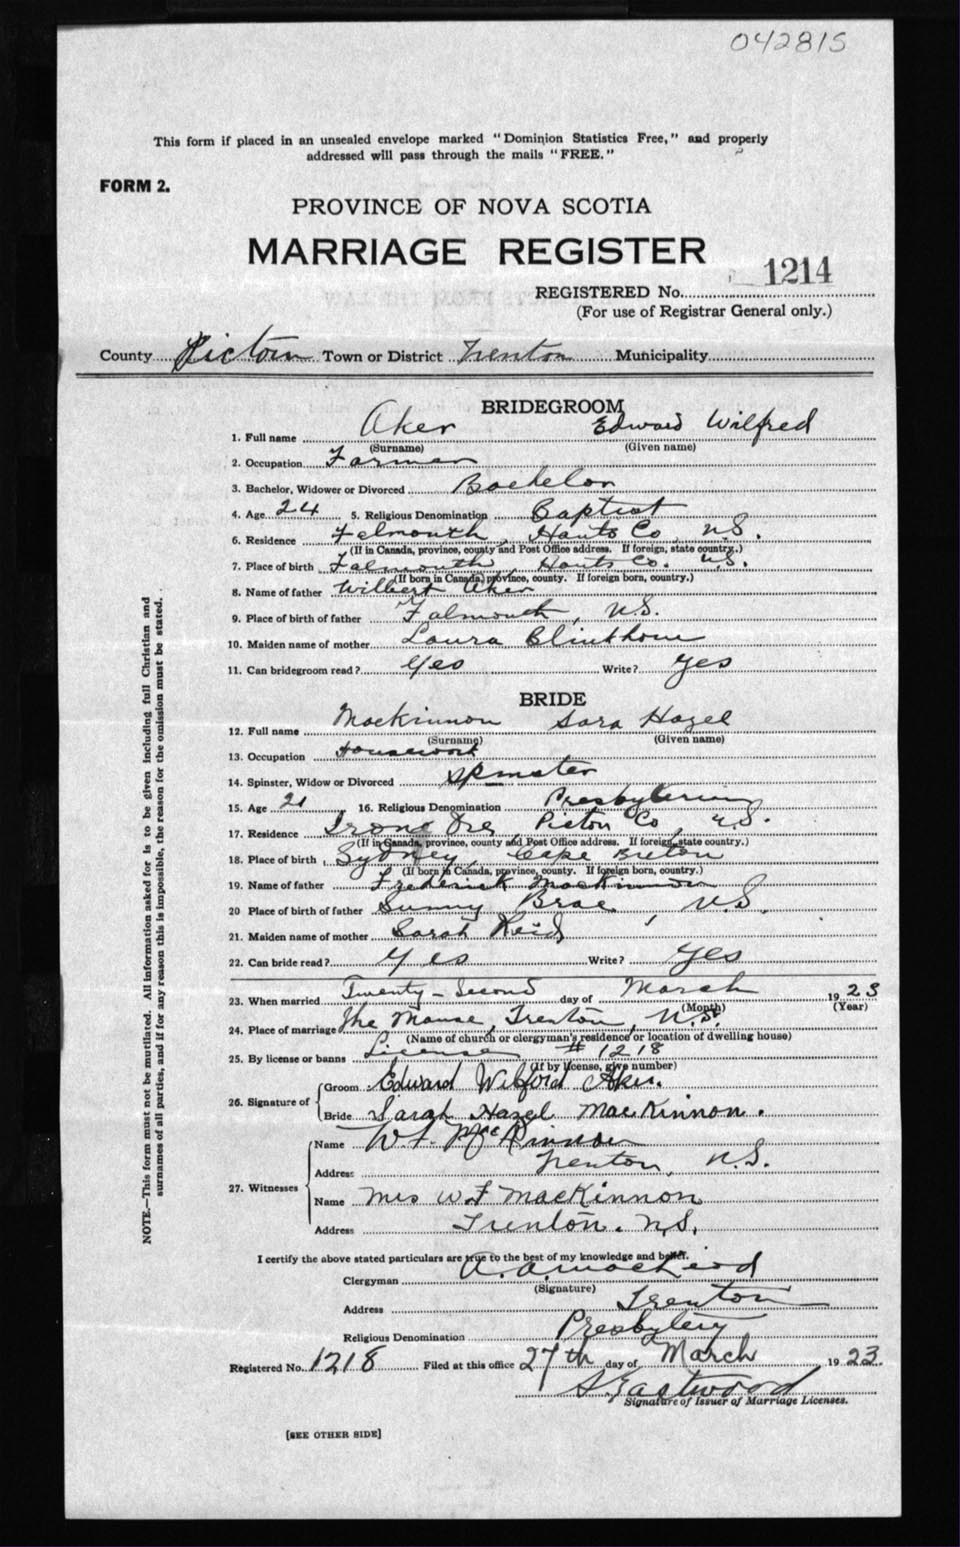 042815
This form if placed in an unsealed envelope marked "Dominion Statistics Free," and properly
addressed will pass through the mails "FREE."
FORM 2.
PROVINCE OF NOVA SCOTIA
MARRIAGE REGISTER
1214
REGISTERED No.
(For use of Registrar General only.)
County Pictou Town or District Trenton Municipality
BRIDEGROOM
1. Full name Aker Edward Wilfred
(Surname) (Given name)
2. Occupation Farmer
3. Bachelor, Widower or Divorced Bachelor
4. Age 24 5. Religious Denomination Baptist
6. Residence Falmouth, Hants Co, N.S.
(If in Canada, province, county and Post Office address. If foreign, state country.)
7. Place of birth Falmouth, Hants Co. N.S.
(If born in Canada, province, county. If foreign born, country.)
8. Name of father Wilbert Aker
9. Place of birth of father Falmouth, N.S.
10. Maiden name of mother Laura
11. Can bridegroom read? Yes Write? Yes
BRIDE
12. Full name MacKinnon Sara Hazel
(Surname) (Given name)
13. Occupation Housework
14. Spinster, Widow or Divorced Spinster
15. Age 21 16. Religious Denomination Presbyterian
17. Residence Irone Ore Pictou Co, N.S.
(If in Canada, province, county and Post Office address. If foreign, state country.)
18. Place of birth Sydney, Cape Breton
(If born in Canada, province, county. If foreign born, country.)
19. Name of father Frederick MacKinnon
20 Place of birth of father Sunny Brae, N.S.
21. Maiden name of mother Sarah Reid
22. Can bride read? Yes Write? Yes
23. When married Twenty-Second day of March 1923
(Month) (Year)
24. Place of marriage The Manse, Trenton, N.S.
(Name of church or clergyman's residence or location of dwelling house)
25. By license or banns License #1218
(If by license, give number)
26. Signature of Groom Edward Wilford Aker.
Bride Sarah Hazel MacKinnon.
27. Witnesses Name W.F. McKinnon
Address Trenton, N.S.
Name Mrs W F MacKinnon
Address Trenton. N.S.
I certify the above stated particulars are true to the best of my knowledge and belief.
Clergyman A. A. MacLeod
(Signature)
Address Trenton
Religious Denomination Presbytery
Registered No. 1218 Filed at this office 27th day of March 1923.
Eastwood
Signature of Issuer of Marriage Licenses.
[SEE OTHER SIDE]
NOTE.—This form must not be mutilated. All information asked for is to be given including full Christian and
surnames of all parties, and if for any reason this is impossible, the reason for the omission must be stated.